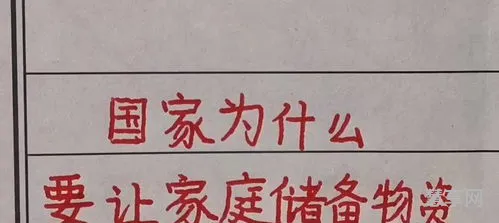 国家为什么
要让家庭储备物资